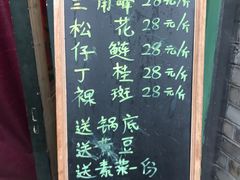 三角峰 28元/斤
松花 28元/斤
仔鲢 28元/斤
丁桂 28元/斤
裸斑 28元/斤
送锅底
送豆
送素菜一份